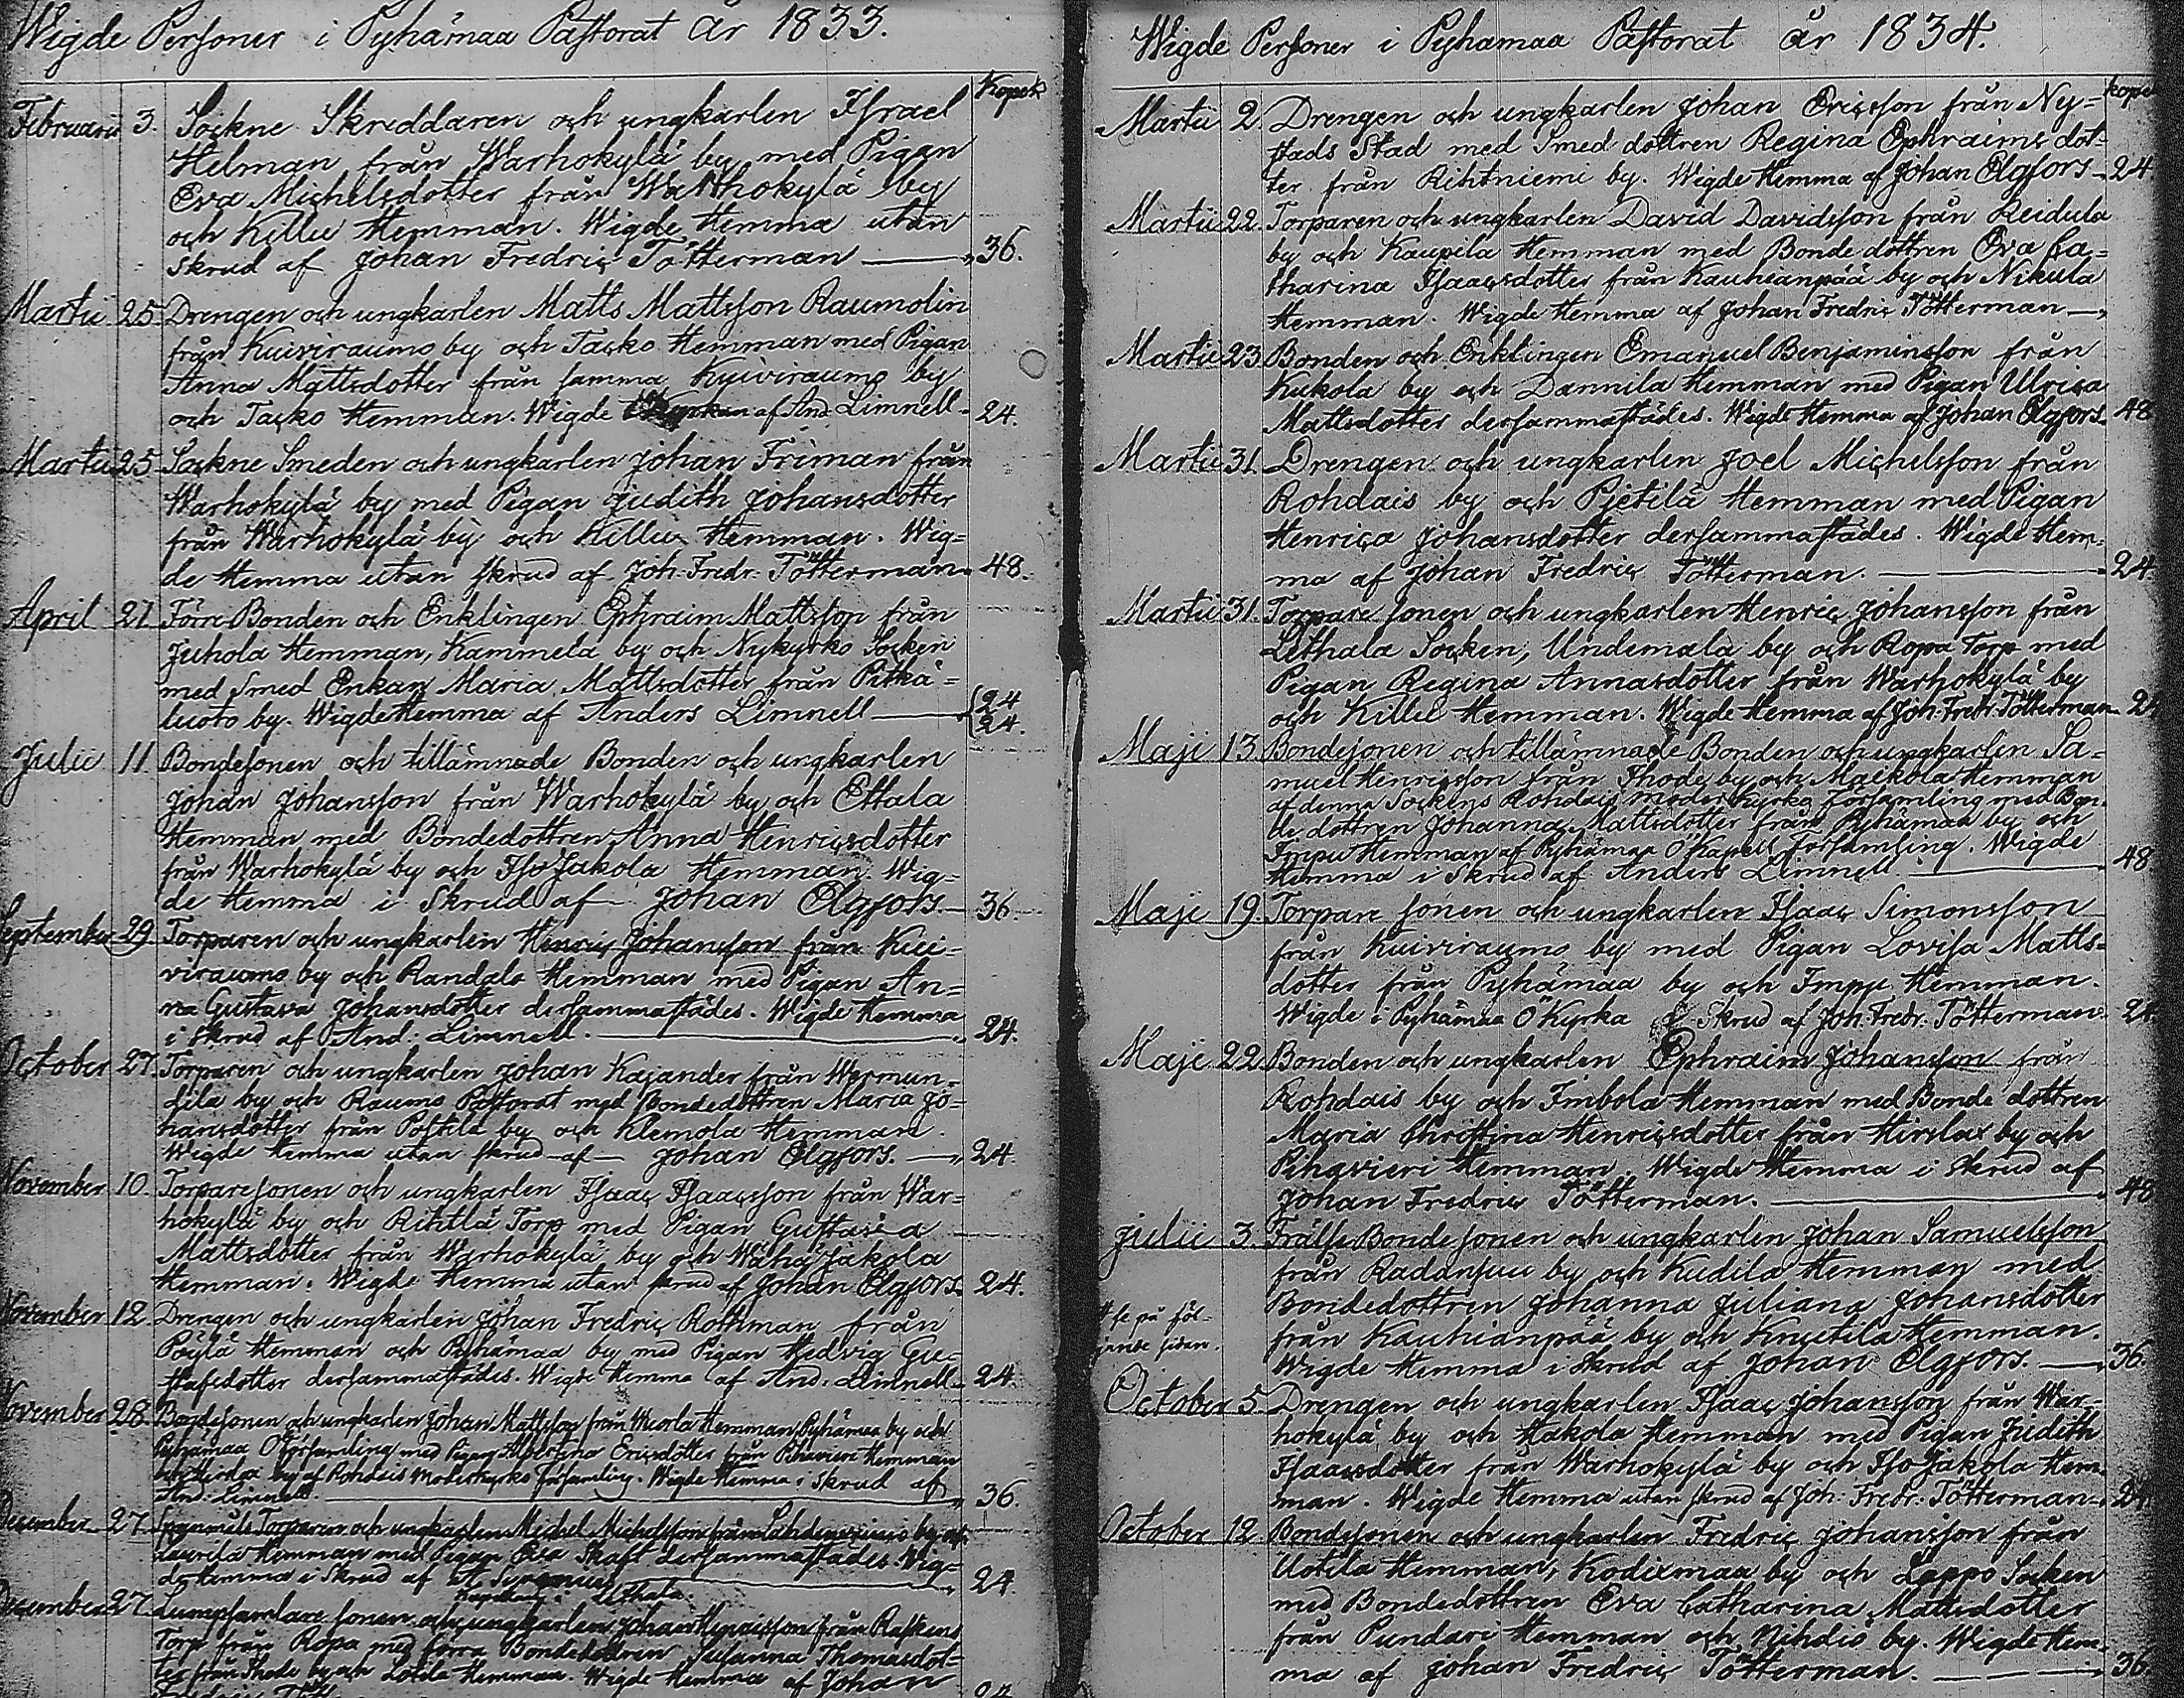 Wigde Personer i Pyhämaa Pastorat År 1833.
Kopek
Februarii 3. Sockne Skreddaren och ungkarlen Israel
Helman från Warhokylä by med Pigan
Eva Michelsdotter från Warhokylä by
och Killu Hemman. Wigde Hemma utan
skrud af Johan Fredric Tötterman — " 36.
Martii 25. Drengen och ungkarlen Matts Mattsson Raumolin
från Kuiviraumo by och Tacko Hemman med Pigan
Anna Mattsdotter från samma Kuiviraumo by
och Tacko Hemman. Wigde i Kyrkan af And. Limnell " 24.
Martii 25. Sockne Smeden och ungkarlen Johan Friman från
Warhokylä by med Pigan Judith Johansdotter
från Warhokylä by och Killu Hemman. Wig=
de Hemma utan skrud af Joh. Fredr. Tötterman " 48.
April 21. Förre Bonden och Enklingen Ephraim Mattsson från
Juhola Hemman, Kammela by och Nykyrko Socken
med Smed Enkan Maria Mattsdotter från Pitkä=
luoto by. Wigde Hemma af Anders Limnell — { 24
24.
Julii 11. Bondesonen och tillämnade Bonden och ungkarlen
Johan Johansson från Warhokylä by och Ettala
Hemman med Bondedottren Anna Henricsdotter
från Warhokylä by och Iso Jakola Hemman. Wig=
de Hemma i Skrud af Johan Elgfors. — 36.
September 29. Torparen och ungkarlen Henric Johansson från Kui=
viraumo by och Randala Hemman med Pigan An=
na Gustava Johansdotter dersammastädes. Wigde Hemma
i skrud af And. Limnell. — " 24.
October 27. Torparen och ungkarlen Johan Kajander från Wermun=
tila by och Raumo Pastorat med Bondedottren Maria Jo=
hansdotter från Poltila by och Klemola Hemman.
Wigde Hemma utan skrud af Johan Elgfors. — " 24.
November 10. Torparesonen och ungkarlen Isaac Isaacsson från War=
hokylä by och Rihtlä Torp med Pigan Gustava
Mattsdotter från Warhokylä by och Wähä Jakola
Hemman. Wigde Hemma utan skrud af Johan Elgfors. 24.
November 12. Drengen och ungkarlen Johan Fredric Rothman från
Pöylä Hemman och Pyhämaa by med Pigan Hedvig Gu=
stafsdotter dersammastädes. Wigde Hemma af And. Limnell " 24.
November 28. Bondesonen och ungkarlen Johan Mattsson från Hemman, Pyhämaa by och
Pyhämaa Ö församling med Pigan Albertina Ericsdotter från Pihavieri Hemman
och by af Rohdais Moderkyrko församling. Wigde Hemma i Skrud af
And. Limnell. — " 36.
December 27. Torparen och ungkarlen Michel Michelsson från by och
Laurila Hemman med Pigan Eva Skaft dersammastädes. Wig=
de Hemma i Skrud af — " 24.
Lethala.
December 27. Lumpsamlare sonen och ungkarlen Johan Henricsson från Raskens
Torp från Ropa med förra Bondedottren Susanna Thomasdot=
ter från Ihode by och Lotila Hemman. Wigde Hemma af Johan
Fredric 24
Wigde Personer i Pyhämaa Pastorat år 1834.
kopek
Martii 2. Drengen och ungkarlen Johan Ericsson från Ny=
stads Stad med Smed dottren Regina Ephraims dot=
ter från Rihtniemi by. Wigde Hemma af Johan Elgfors. 24
Martii 22. Torparen och ungkarlen David Davidsson från Reidula
by och Kaupila Hemman med Bonde dottren Eva Ca=
tharina Isaacsdotter från Kauhianpää by och Nikula
Hemman. Wigde Hemma af Johan Fredric Tötterman — "
Martii 23. Bonden och Enklingen Emanuel Benjaminsson från
Kukola by och Dannila Hemman med Pigan Ulrica
Mattsdotter dersammastädes. Wigde Hemma af Johan Elgfors. 48
Martii 31. Drengen och ungkarlen Joel Michelsson från
Rohdais by och Pjetilä Hemman med Pigan
Henrica Johansdotter dersammastädes. Wigde Hem=
ma af Johan Fredric Tötterman. — " 24.
Martii 31. Torpare sonen och ungkarlen Henric Johansson från
Lethala Socken, Undemala by och Ropa Torp med
Pigan Regina Annasdotter från Warhokylä by
och Killu Hemman. Wigde Hemma af Joh. Fredr. Tötterman. 24
Maji 13. Bondesonen och tillämnade Bonden och ungkarlen Sa=
muel Henricsson från Ihode by och Mäckola Hemman
af denna Sockens Rohdais Moderkyrko församling med Bon=
de dottren Johanna Mattsdotter från Pyhämaa by och
Impu Hemman af Pyhämaa Ö Kapells församling. Wigde
Hemma i Skrud af Anders Limnell. — 48
Maji 19. Torpare sonen och ungkarlen Isaac Simonsson
från Kuiviraumo by med Pigan Lovisa Matts=
dotter från Pyhämaa by och Impu Hemman.
Wigde i Pyhämaa Ö Kyrka i Skrud af Joh. Fredr. Tötterman. 24
Maji 22. Bonden och ungkarlen Ephraim Johansson från
Rohdais by och Simbola Hemman med Bonde dottren
Maria Christina Henricsdotter från Hirslax by och
Pihavieri Hemman. Wigde Hemma i Skrud af
Johan Fredric Tötterman. — " 48
Julii 3. Frälse Bonde sonen och ungkarlen Johan Samuelsson
från Radansuu by och Kudila Hemman med
Bondedottren Johanna Juliana Johansdotter
# se på föl=
jande sidan.
från Kauhianpää by och Knutila Hemman.
Wigde Hemma i Skrud af Johan Elgfors. — 36.
October 5. Drengen och ungkarlen Isaac Johansson från War=
hokylä by och Hakola Hemman med Pigan Judith
Isaacsdotter från Warhokylä by och Iso Jakola Hem=
man. Wigde Hemma utan skrud af Joh. Fredr. Tötterman. 24.
October 12. Bondesonen och ungkarlen Fredric Johansson från
Uotila Hemman, Kodixmaa by och Lappo Socken
med Bondedottren Eva Catharina Mattsdotter
från Pundari Hemman och Nihdiö by. Wigde Hem=
ma af Johan Fredric Tötterman. — " 36.